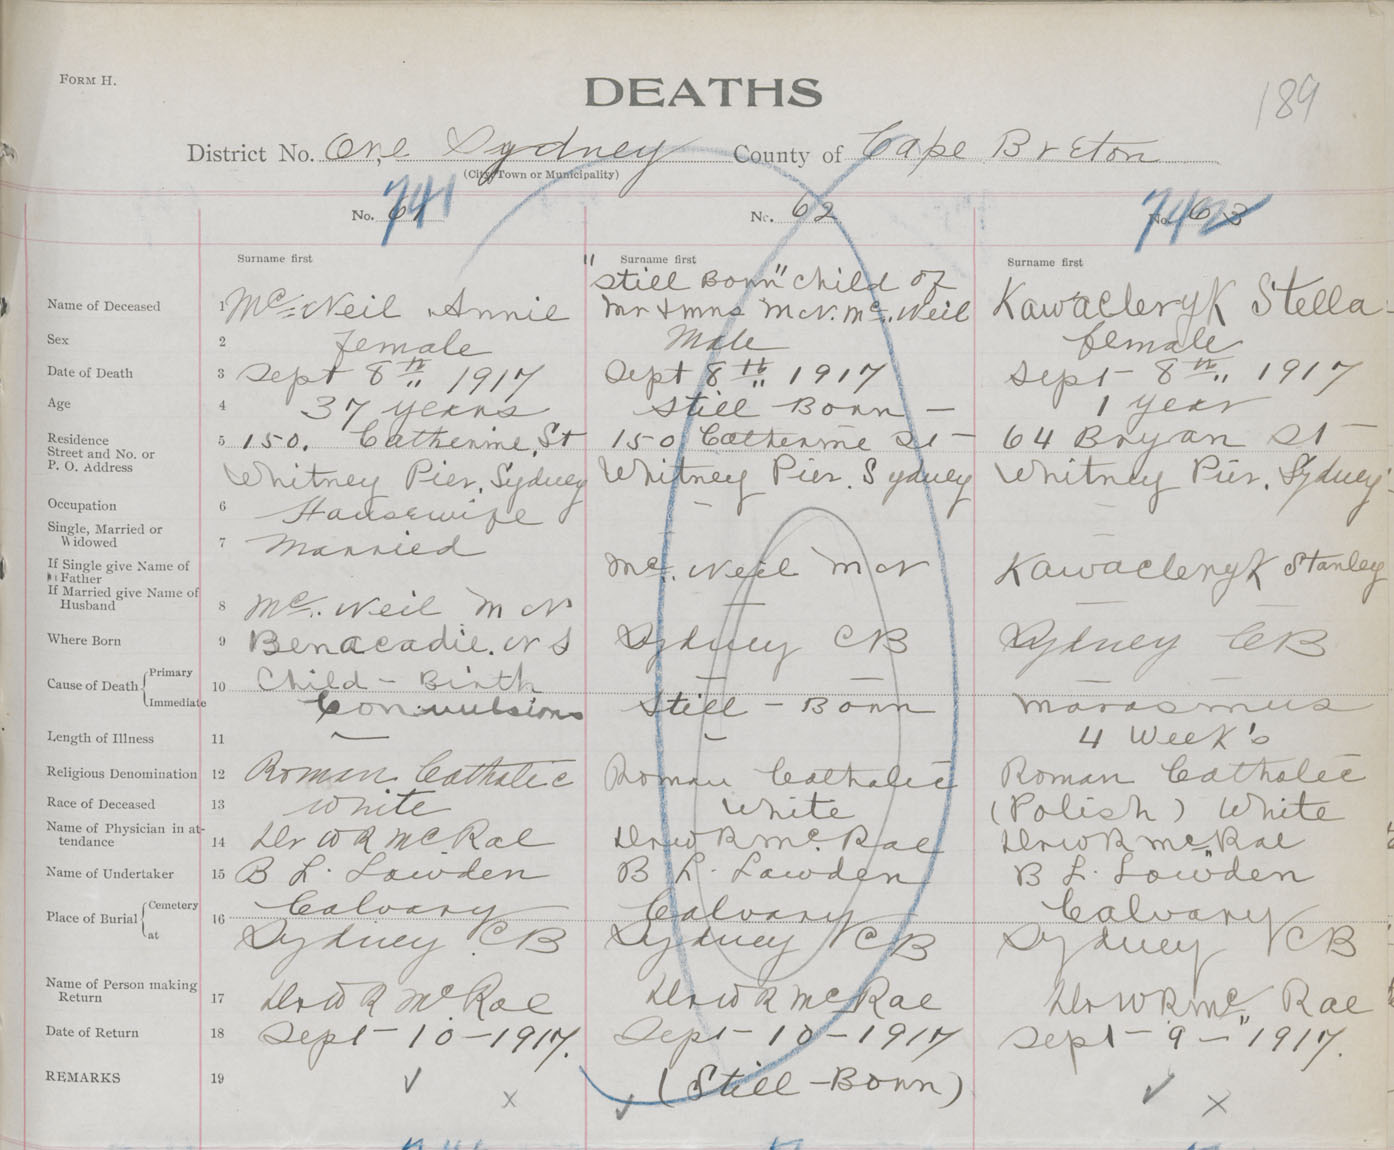 FORM H.
DEATHS
189
District No. One Sydney County of Cape Breton
(City, Town or Municipality)
No. 61 741
No. 62
No. 63 742
Surname first
Surname first
Surname first
Name of Deceased 1 Mc. Neil Annie
"Still Born" child of
Mr & Mrs M N. Mc. Neil
Kawacleryk Stella
Sex 2 Female Male female
Date of Death 3 Sept 8th 1917 Sept 8th 1917 Sept - 8th 1917
Age 4 37 years Still Born - 1 year
Residence
Street and No. or
P. O. Address
5 150. Catherine St 150 Catherine St - 64 Bryan St -
Whitney Pier, Sydney Whitney Pier. Sydney Whitney Pier. Sydney
Occupation 6 Housewife -
Single, Married or
Widowed
7 Married
If Single give Name of
Father
Mc. Neil M N Kawacleryk Stanley
If Married give Name of
Husband
8 Mc. Neil M N — —
Where Born 9 Benacadie. N S Sydney C B Sydney C B
Cause of Death Primary
Immediate
10 Child - Birth — —
Convulsions Still - Born Marasmus
Length of Illness 11 — — 4 Week's
Religious Denomination 12 Roman Catholic Roman Catholic Roman Catholic
Race of Deceased 13 White White (Polish) White
Name of Physician in at-
tendance
14 Dr W R McRae Dr W R Mc. Rae Dr W R Mc. Rae
Name of Undertaker 15 B L. Lowden B L. Lowden B L. Lowden
Place of Burial Cemetery
at
16 Calvary Calvary Calvary
Sydney C B Sydney C B Sydney C B
Name of Person making
Return
17 Dr W R Mc. Rae Dr W R Mc Rae Dr W R Mc Rae
Date of Return 18 Sept - 10 - 1917. Sept - 10 - 1917 Sept - 9 - 1917.
REMARKS 19 ✓ x ✓ (Still - Born) ✓ x